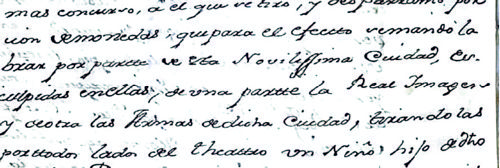 mas concurso, a el que se tiro, y desparramo por
cion de monedas, que para el efecto se mandó la
brar por parte de esta Novilissima Ciudad, es-
culpidas en ellas, de una parte la Real Imagen
y de otra las Armas de dicha Ciudad, tirandolas
por todos lados del theatro un Niño, hijo de dho